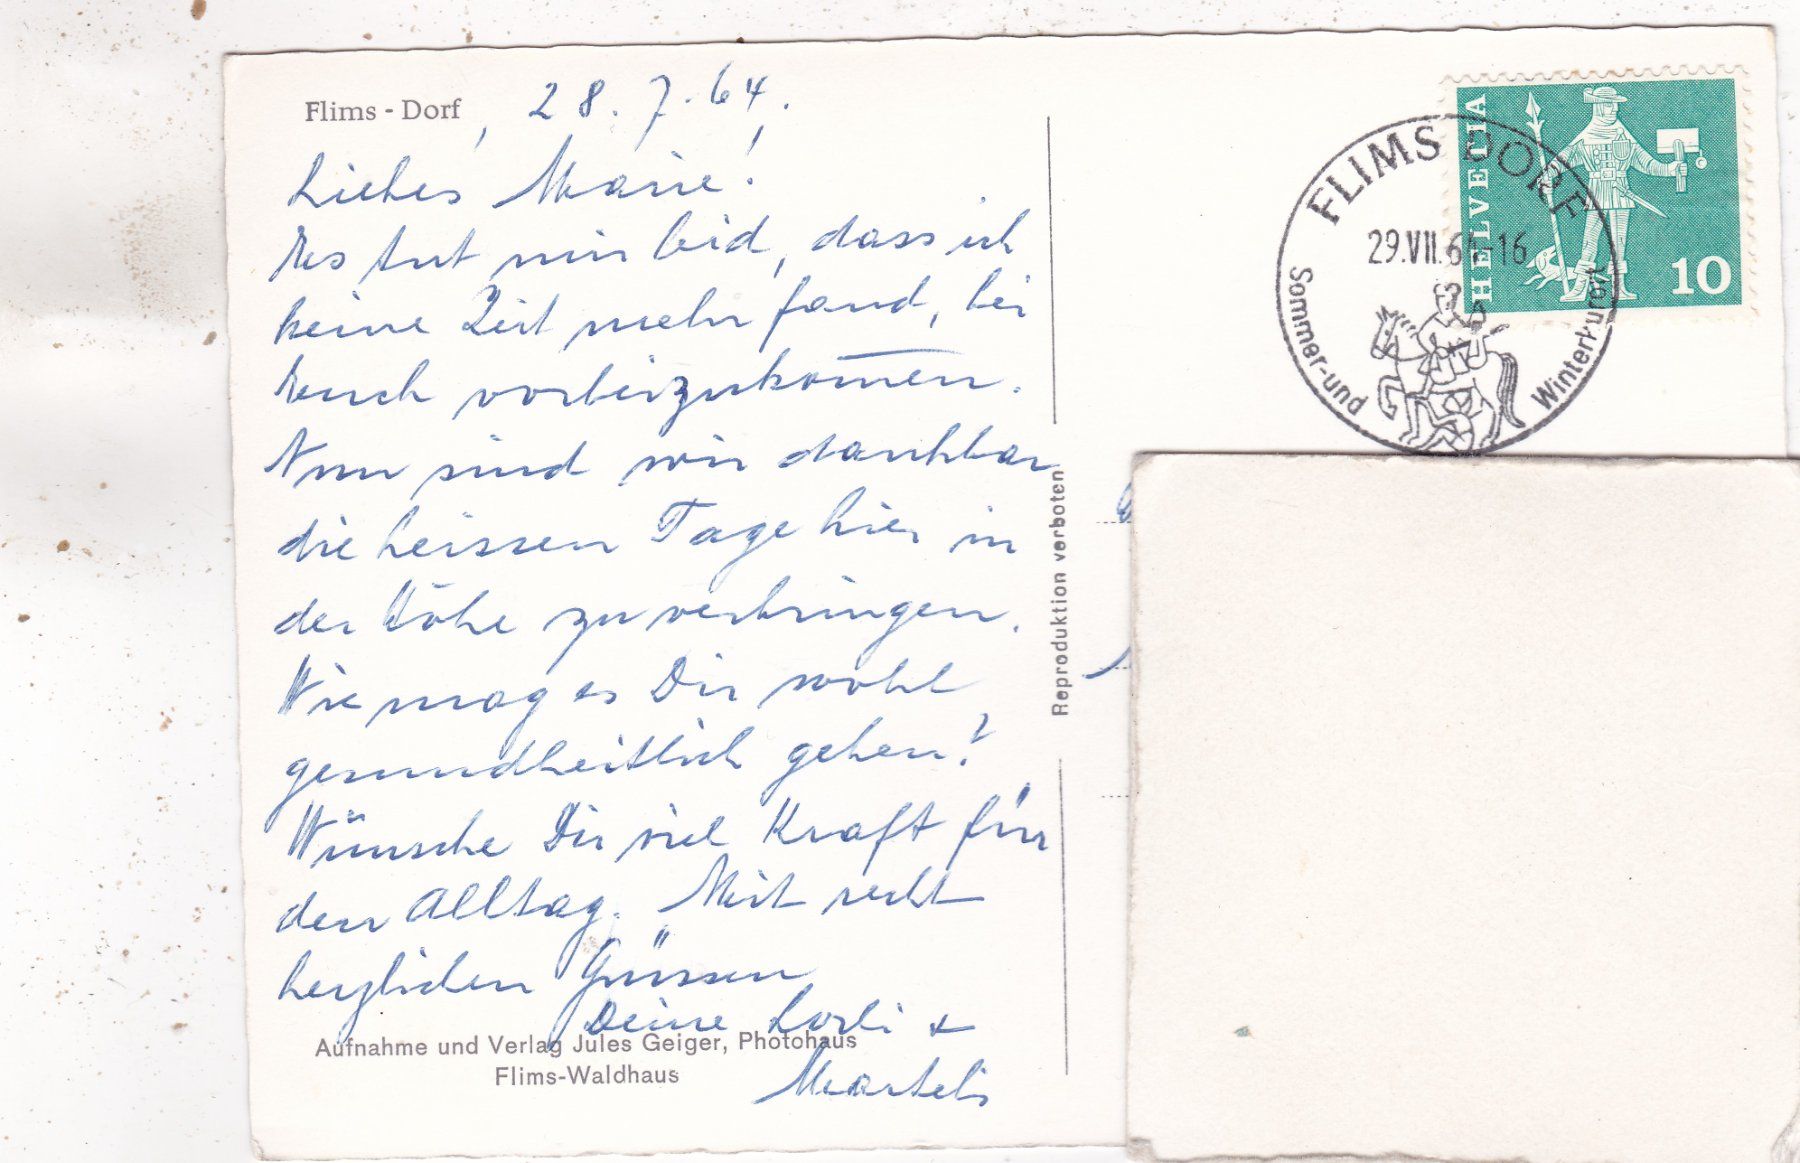 Flims - Dorf, 28. 7. 64.
Liebes Marie!
Es tut mir leid, dass ich
keine Zeit mehr fand, bei
Euch vorbeizukom̅en.
Nun sind wir dankbar
die heissen Tage hier in
der Höhe zu verbringen.
Wie mag es Dir wohl
gesundheitlich gehen?
Wünsche Dir viel Kraft für
den Alltag. Mit recht
herzlichen Grüssen
Deine &
Aufnahme und Verlag Jules Geiger, Photohaus
Flims-Waldhaus
Reproduktion verboten
HELVETIA
10
FLIMS DORF
29.VII.64-16
Sommer-und
Winterkurort